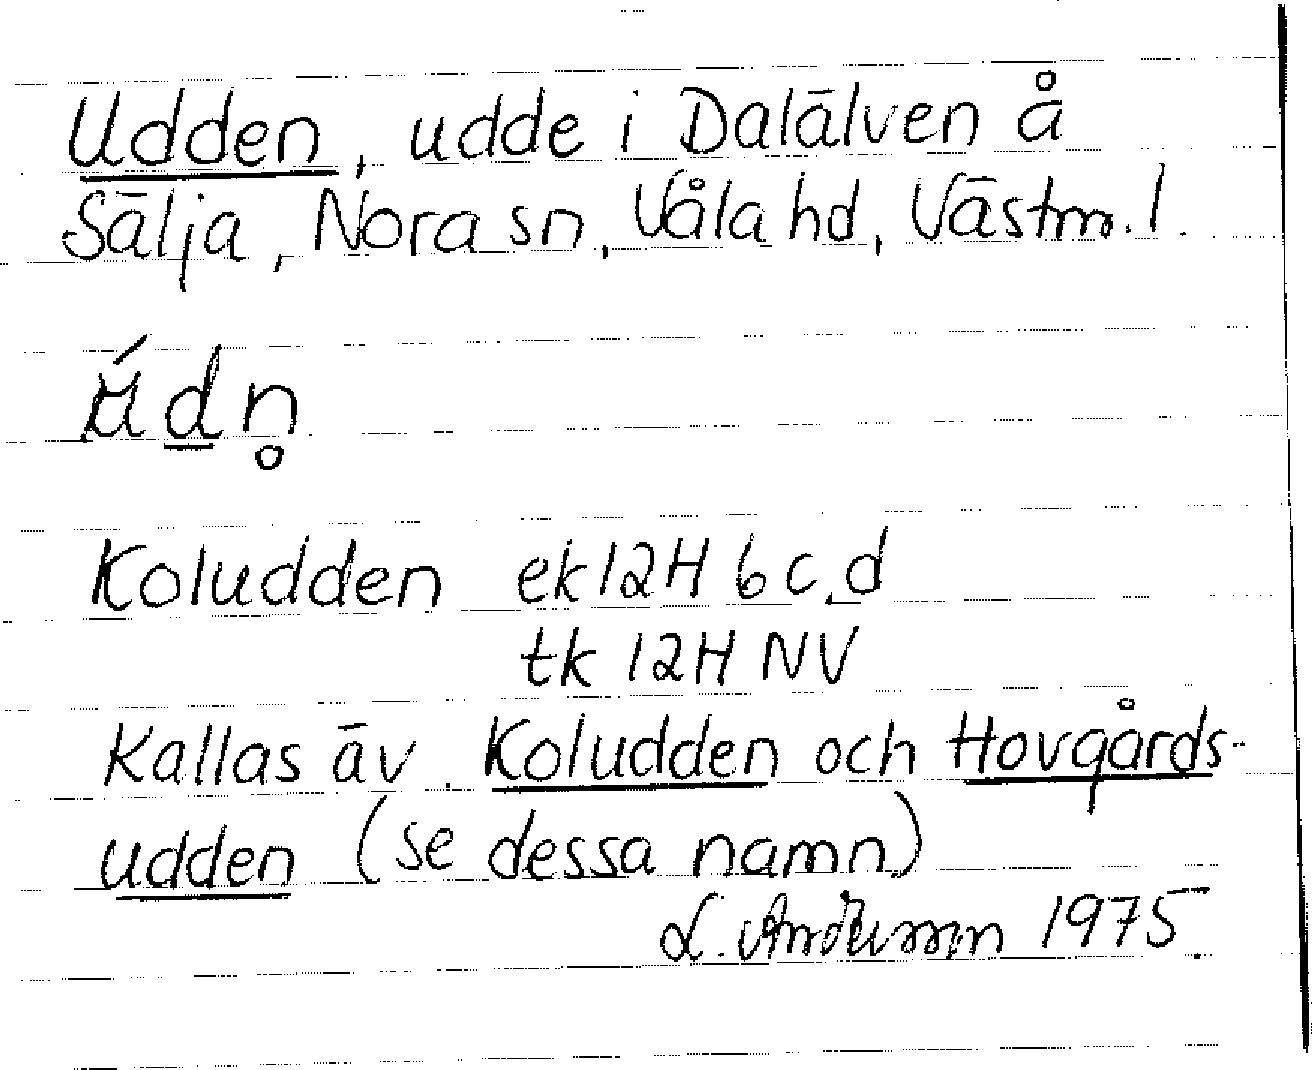 Udden, udde i Dalälven å
Sälja, Nora sn, Våla hd, Västm. l.
ú̠dn̥
Koludden ek 12H 6 c, d
tk 12H NV
Kallas äv. Koludden och Hovgårds-
udden (se dessa namn)
L. Andersson 1975.